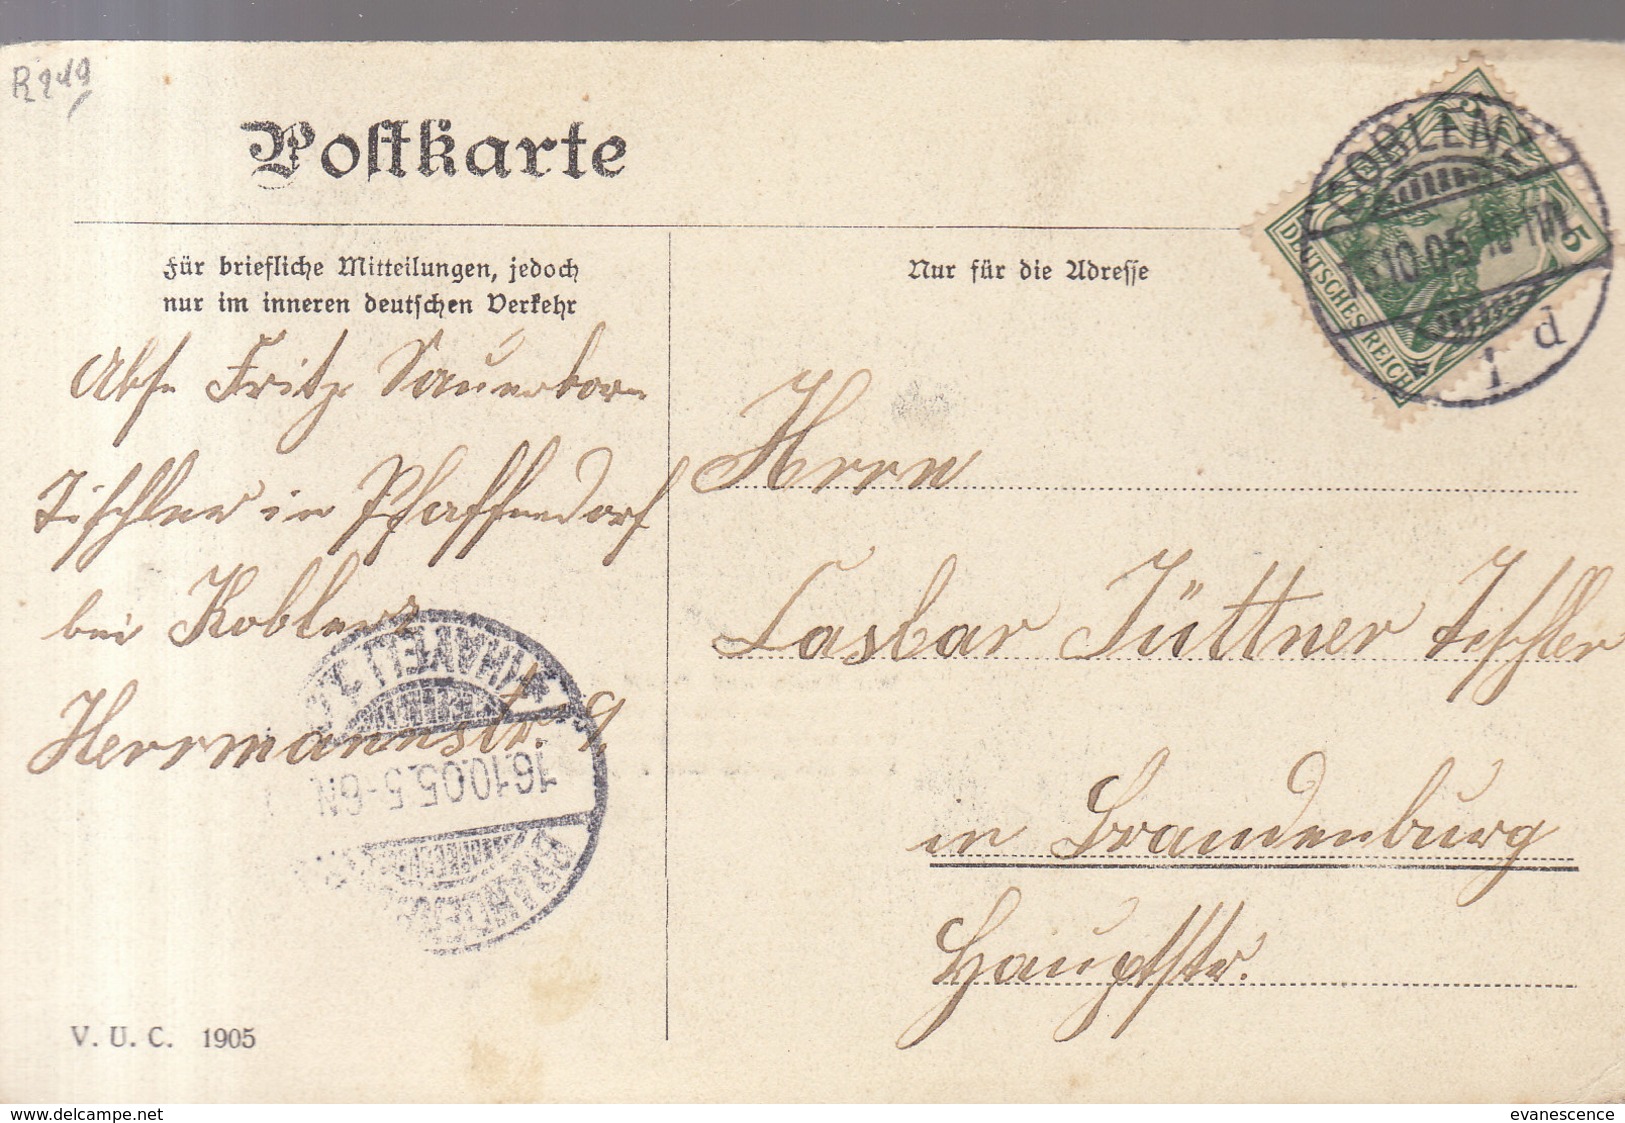 R249
Postkarte
Für briefliche Mitteilungen, jedoch
nur im inneren deutschen Verkehr
Nur für die Adresse
DEUTSCHES REICH
5
COBLENZ
10.05
* 1 d
Abs. Fritz Sauerborn
Tischler in Pfaffendorf
bei Koblenz
Herrmannstr. 9
16.10.05. 5-6N
Herrn
Casbar Jüttner Tischler
in Brandenburg
Hauptstr.
V. U. C. 1905
www.delcampe.net
evanescence